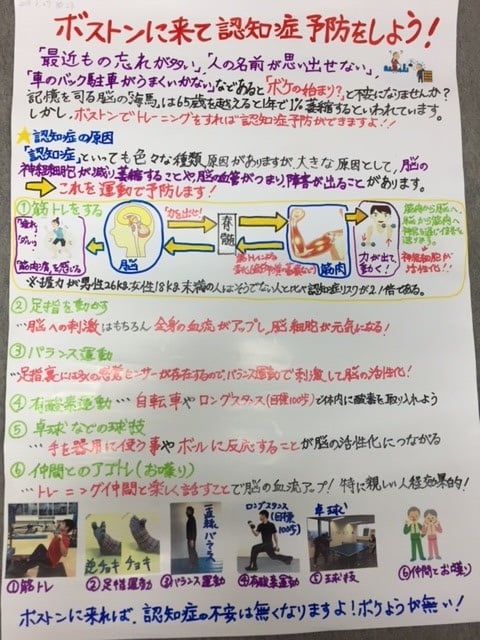 ボストンに来て認知症予防をしよう!
「最近もの忘れが多い」,「人の名前が思い出せない」,
「車のバック駐車がうまくいかない」などあると「ボケの始まり?」と不安になりませんか?
記憶を司る脳の「海馬」は65歳を越えると1年で1%萎縮するといわれています。
しかし、ボストンでトレーニングをすれば認知症予防ができますよ!!
★認知症の原因
「認知症」といっても色々な種類、原因がありますが、大きな原因として、脳の
神経細胞が減り萎縮することや脳の血管がつまり障害が出ることがあります。
⇒これを運動で予防します!
①筋トレをする
「疲れ」
「ダルい」
「筋肉痛」を感じる
脳
「力を出せ!」
脊髄
筋肉
力が出て動く!
筋肉から脳へ、
脳から筋肉へ
神経を通じ信号を
送ります。
神経細胞が
活性化!!
※握力が男性26kg、女性18kg未満の人はそうでない人と比べ認知症リスクが2.1倍である。
②足指を動かす
…脳への刺激はもちろん全身の血流がアップし、脳細胞が元気になる!
③バランス運動
…足指裏には多くの感覚センサーが存在するので、バランス運動で刺激して脳の活性化!
④有酸素運動…自転車やロングスタンス(目標100歩)で体内に酸素を取り入れよう
⑤卓球などの球技
…手を器用に使う事やボールに反応することが脳の活性化につながる
⑥仲間とのアゴトレ(お喋り)
…トレーニング仲間と楽しく話すことで脳の血流アップ!特に親しい人程効果的!
逆チョキ チョキ
ロングスタンス(目標100歩)
卓球
①筋トレ ②足指運動 ③バランス運動 ④有酸素運動 ⑤球技 ⑥仲間とお喋り
ボストンに来れば、認知症の不安は無くなりますよ!ボケようが無い!